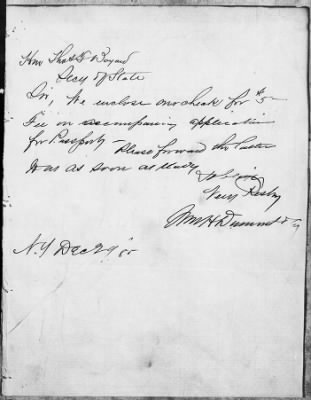 Hon Thos F Bayard
Secy of State
Sir, We enclose our check for $5–
Fee on accompanying application
for Passport – Please forward the
as soon as
Very Resby
Wm H Dummond
N.Y Dec 29 '85